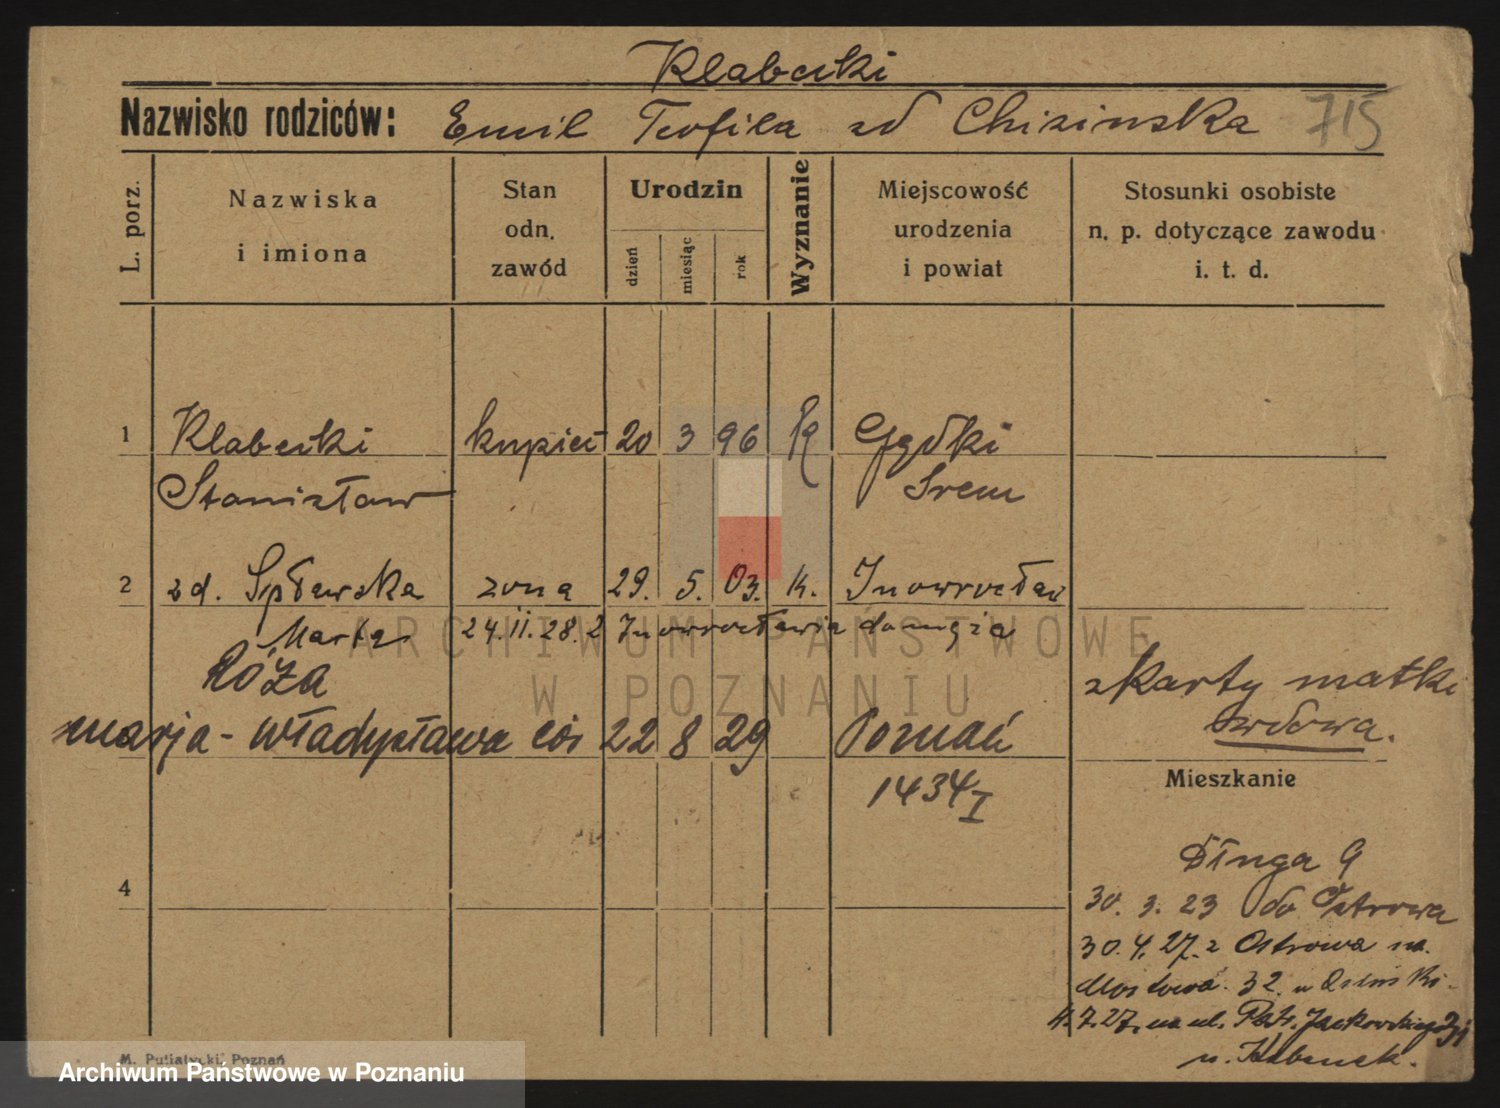 Klabecki
Nazwisko rodziców: Emil Teofila zd Chizinska 715
L. porz.
Nazwiska
i imiona
Stan
odn.
zawód
Urodzin
dzień
miesiąc
rok
Wyznanie
Miejscowość
urodzenia
i powiat
Stosunki osobiste
n. p. dotyczące zawodu
i. t. d.
1 Klabecki kupiec 20 3 96 K Gądki
Stanisław Srem
2 zd. Spławska zona 29. 5. 03. k. Inowrocław
Marta 24.II.28. z Inowrocławia do męża
RÓŻA
z Karty matki
marja - Władysława cór 22 8 29 Poznań
wdowa.
1434 I
Mieszkanie
Długa 9
4
30. 3. 23 do Ostrowa
30. 4. 27. z Ostrowa na
Mostowa. 32. u
4.7.27. na ul. Patr. Jackowskiego
u.
M. Putiatycki, Poznań
ARCHIWUM PAŃSTWOWE
W POZNANIU
Archiwum Państwowe w Poznaniu